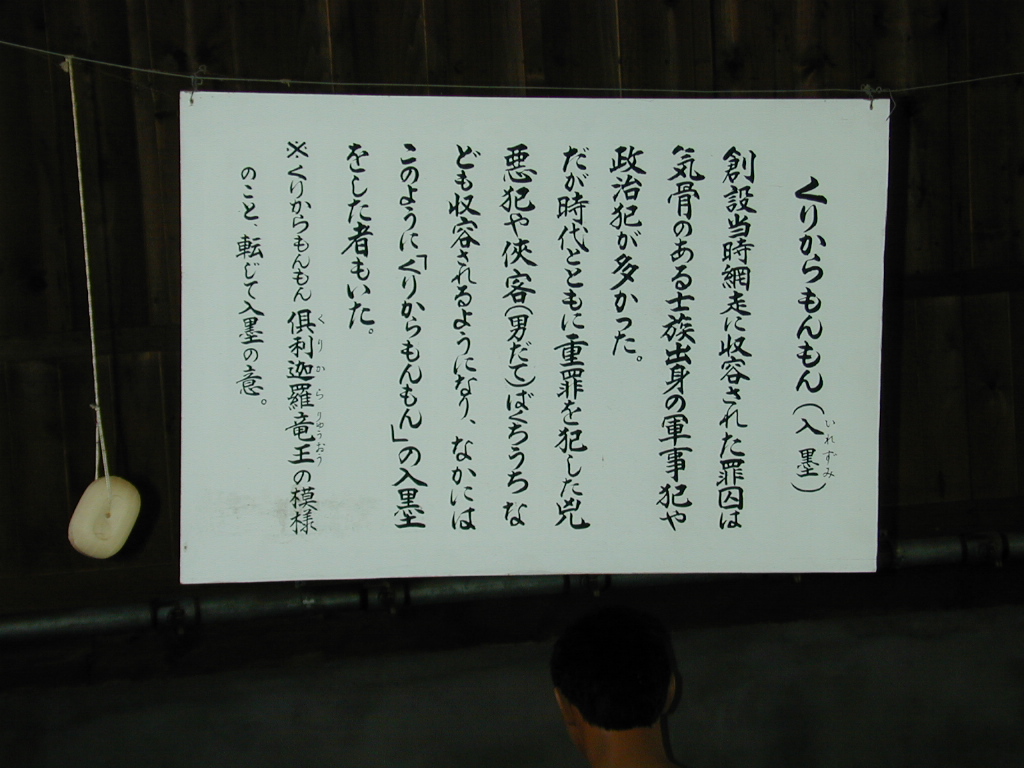 くりからもんもん(入墨)
いれずみ
創設当時網走に収容された罪囚は
気骨のある士族出身の軍事犯や
政治犯が多かった。
だが時代とともに重罪を犯した兇
悪犯や侠客(男だて)ばくちうちな
ども収容されるようになり、なかには
このように「くりからもんもん」の入墨
をした者もいた。
※くりからもんもん 倶利迦羅竜王の模様
くりからりゅうおう
のこと、転じて入墨の意。